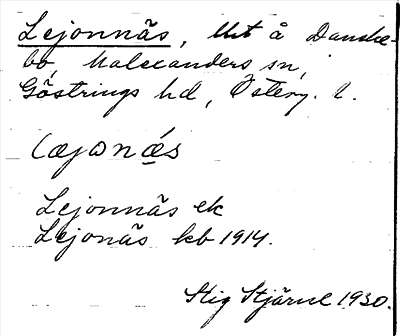 Lejonnäs, Hst å Danske-
bo, Malexanders sn,
Göstrings hd, Österg. l.
Lejonnäs ek
Lejonäs kb 1914.
Stig Stjärne 1930.